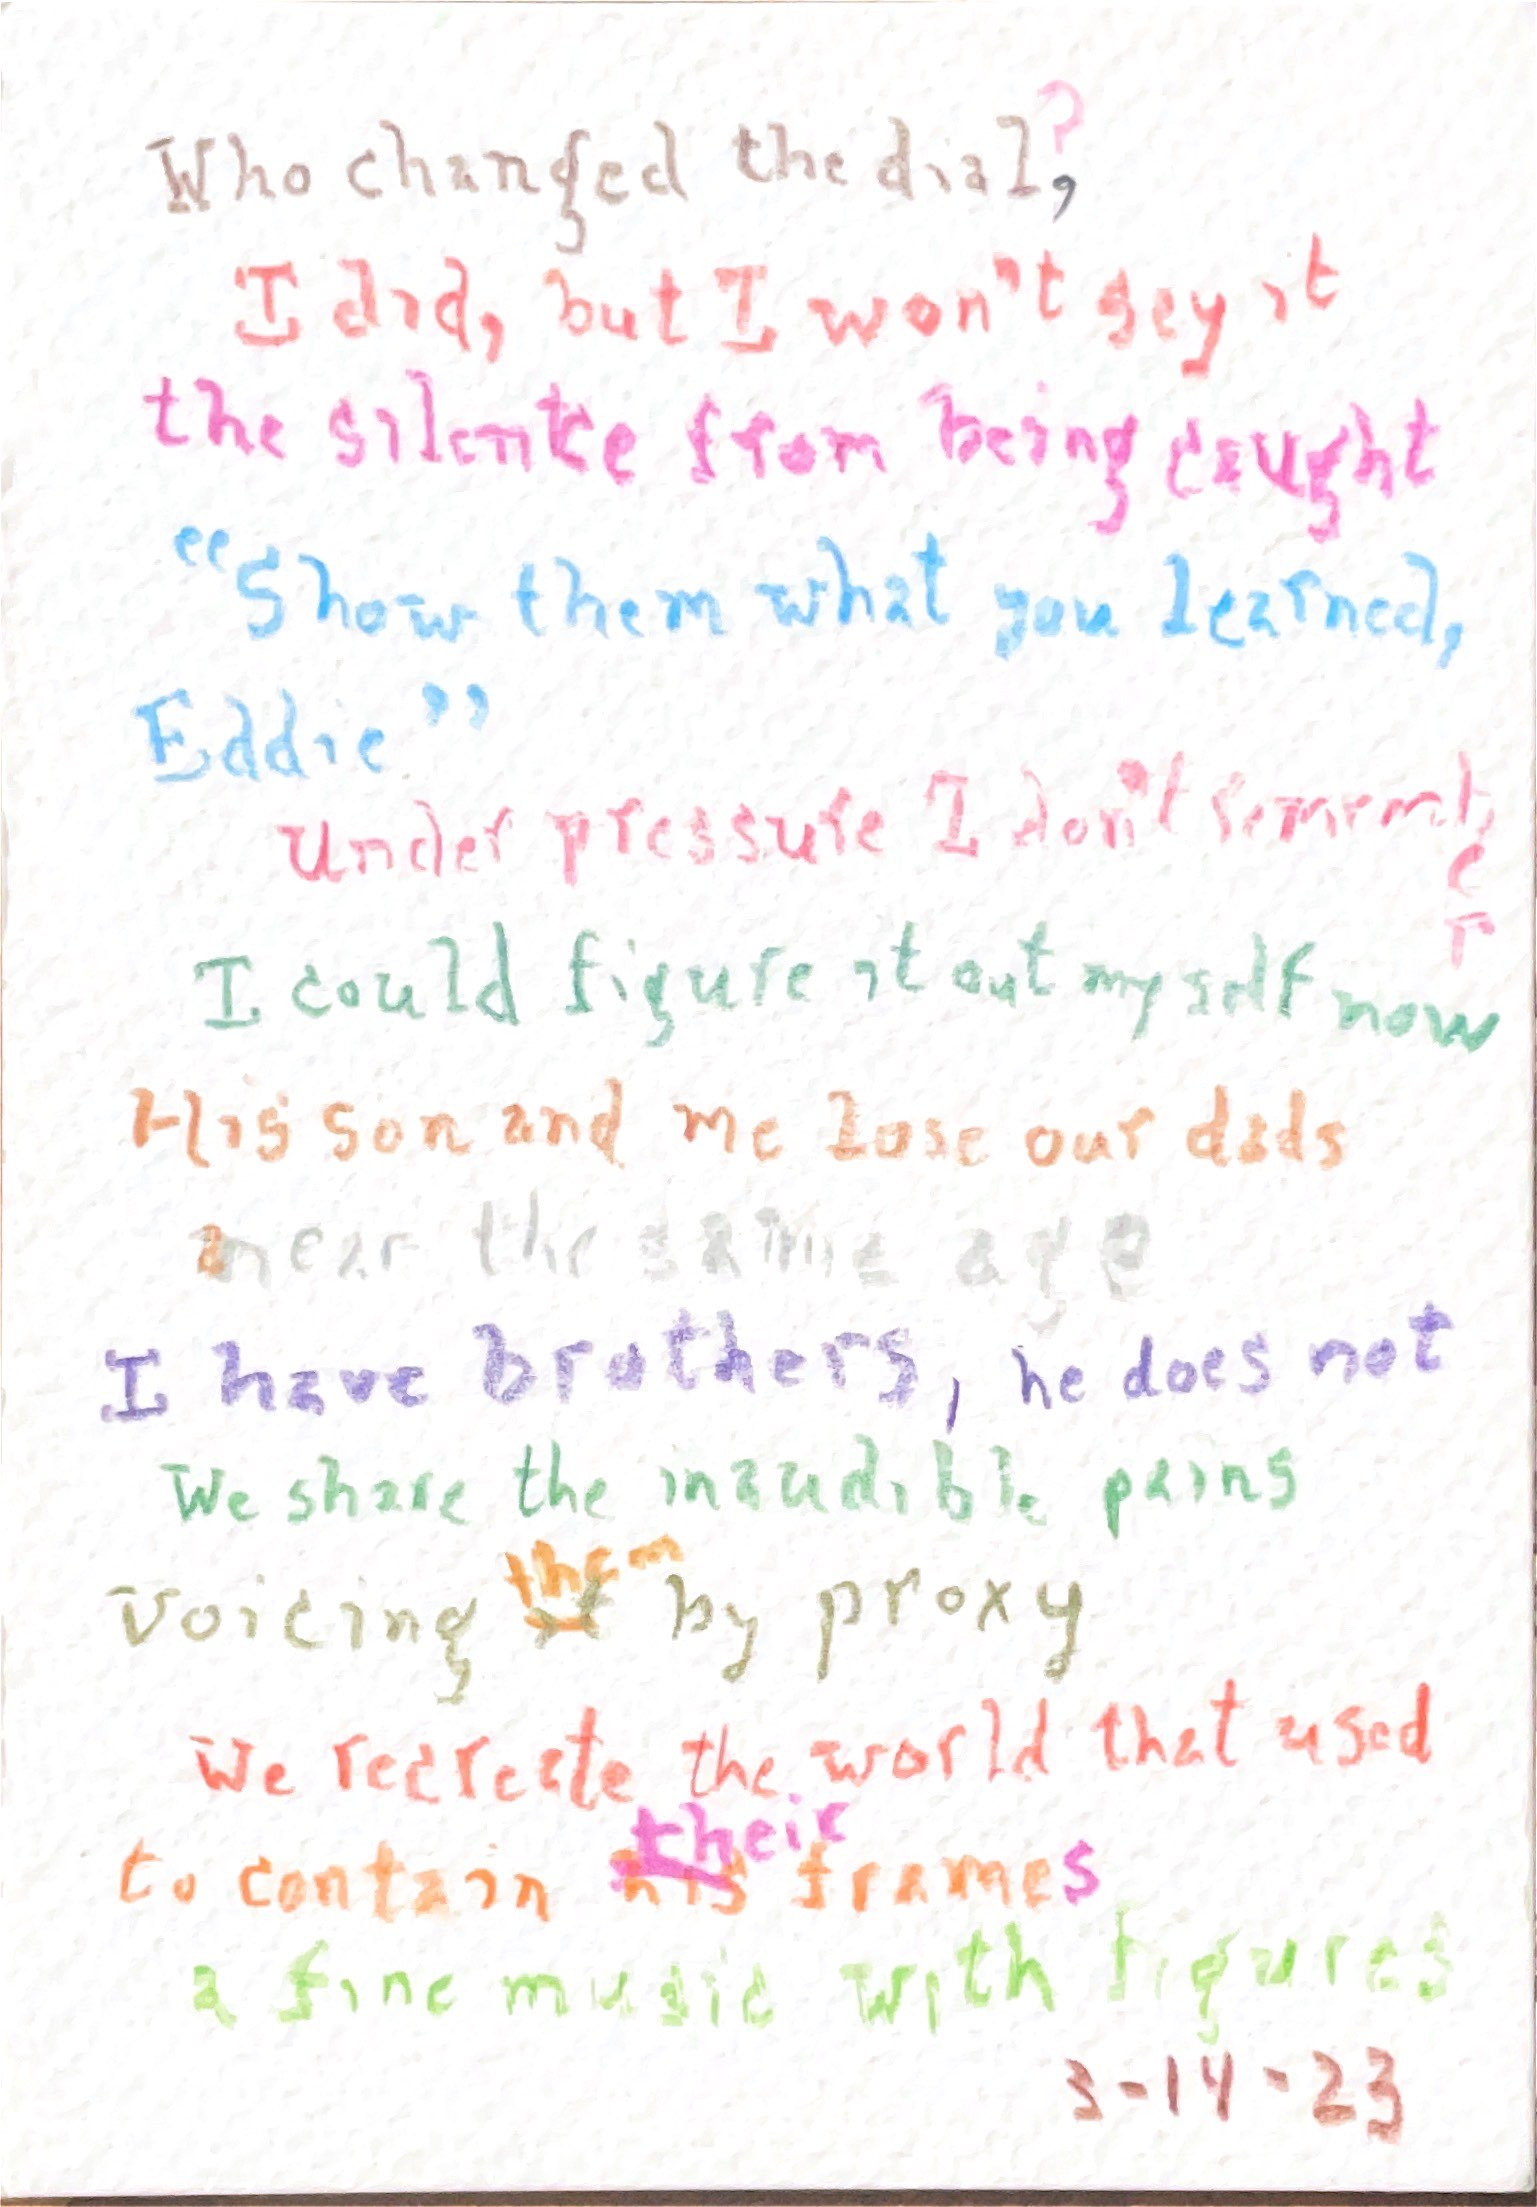 Who changed the dial?,
I did, but I won't sey it
the silence from being caught
“Show them what you learned,
Eddie”
Under pressure I don't remember
I could figure it out my self now
His son and me lose our dads
near the same age
I have brothers, he does not
We share the inaudible pains
Voicing them by proxy
We recreate the world that used
to contain their frames
a fine music with figures
3-14-23